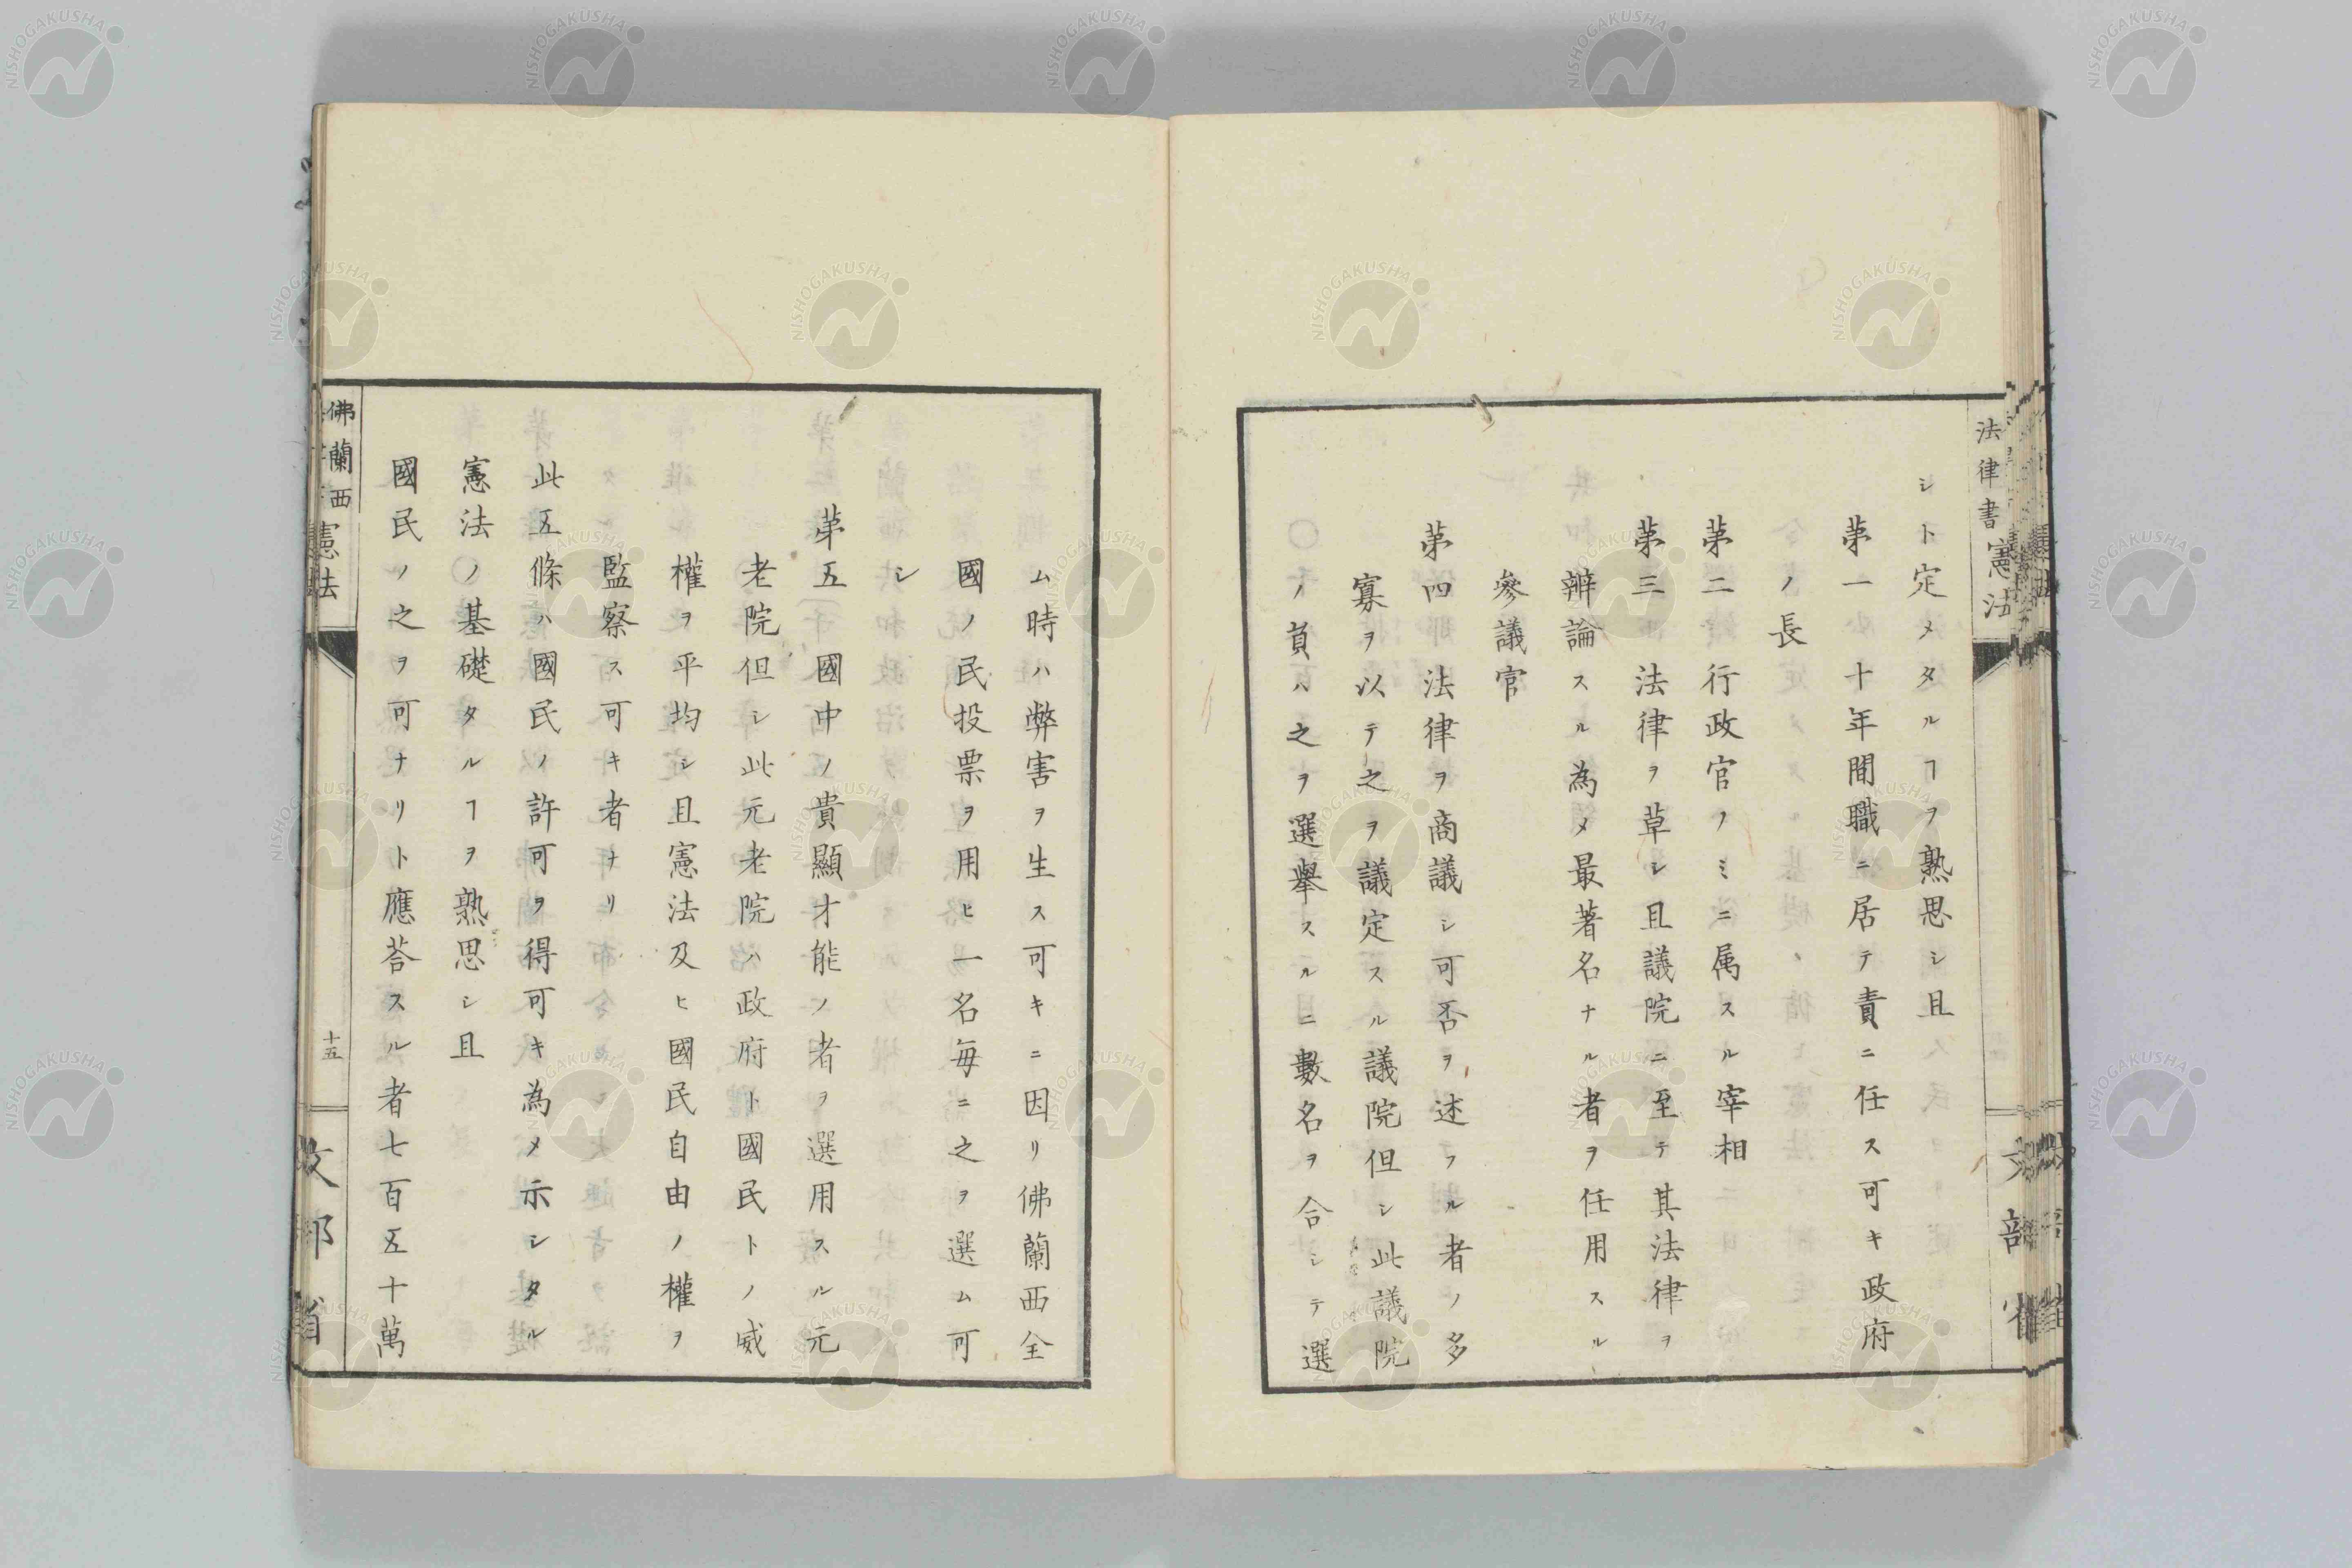 法律書憲法
シト定メタルヿヲ熟思シ且
苐一 十年間職ニ居テ責ニ任ス可キ政府
ノ長
苐二 行政官ノミニ属スル宰相
苐三 法律ヲ草シ且議院ニ至テ其法律ヲ
辨論スル為メ最著名ナル者ヲ任用スル
參議官
苐四 法律ヲ商議シ可否ヲ述フル者ノ多
寡ヲ以テ之ヲ議定スル議院但シ此議院
ノ負ハ之ヲ選擧スルニ數名ヲ合シテ選
ム時ハ弊害ヲ生ス可キニ因リ佛蘭西全
國ノ民投票ヲ用ヒ一名毎ニ之ヲ選ム可
シ
苐五 國中ノ貴顯才能ノ者ヲ選用スル元
老院但シ此元老院ハ政府ト國民トノ威
權ヲ平均シ且憲法及ヒ國民自由ノ權ヲ
監察ス可キ者ナリ
此五條ハ國民ノ許可ヲ得可キ為メ示シタル
憲法ノ基礎タルヿヲ熟思シ且
國民ノ之ヲ可ナリト應荅スル者七百五十萬
佛蘭西憲法
十五
文部省
NISHOGAKUSHA